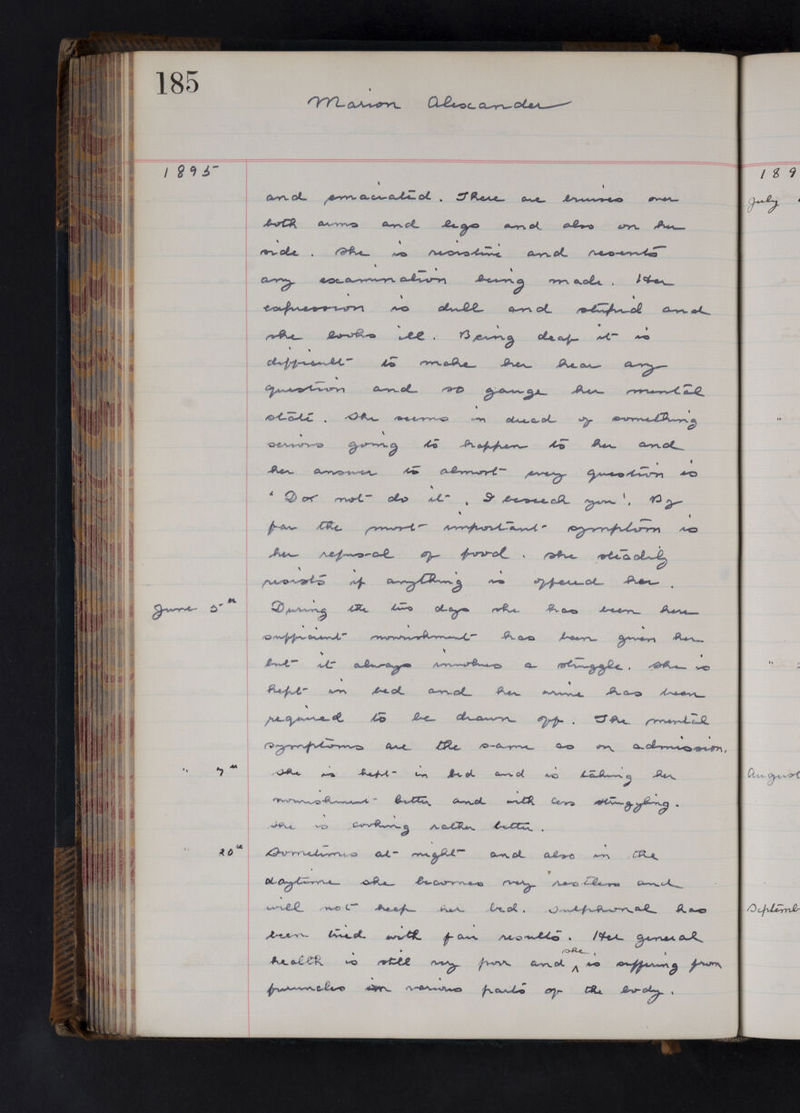 185
Marion Alexander
1895
and emaciated. There are bruises over
both arms and legs and also on her
side. She is resistive and resents
any examination being made. Her
expression is dull and stupid and
she looks ill. Being deaf it is
difficult to make her hear any
question and so gauge her mental
state. She seems in dread of something
serious going to happen to her and
her answer to almost every question is
'Do not do it, I beseech you'. By
far the most important symptom is
her refusal of food. She steadily
resists if anything is offered her.
June 5th During the two days she has been here
sufficient nourishment has been given her
but it always involves a struggle. She is
kept in bed and her urine has been
required to be drawn off. The mental
symptoms are the same as on admission.
" 7th She is kept in bed and is taking her
nourishment better and with less struggling.
She is looking rather better.
" 20th Sometimes at night and also in the
daytime she becomes very restless and
will not keep her bed. Sulphonal has
been tried with fair results. Her general
health is still very poor and she is suffering from
furuncles in various parts of the body.
189
July
"
"
August
Septemb